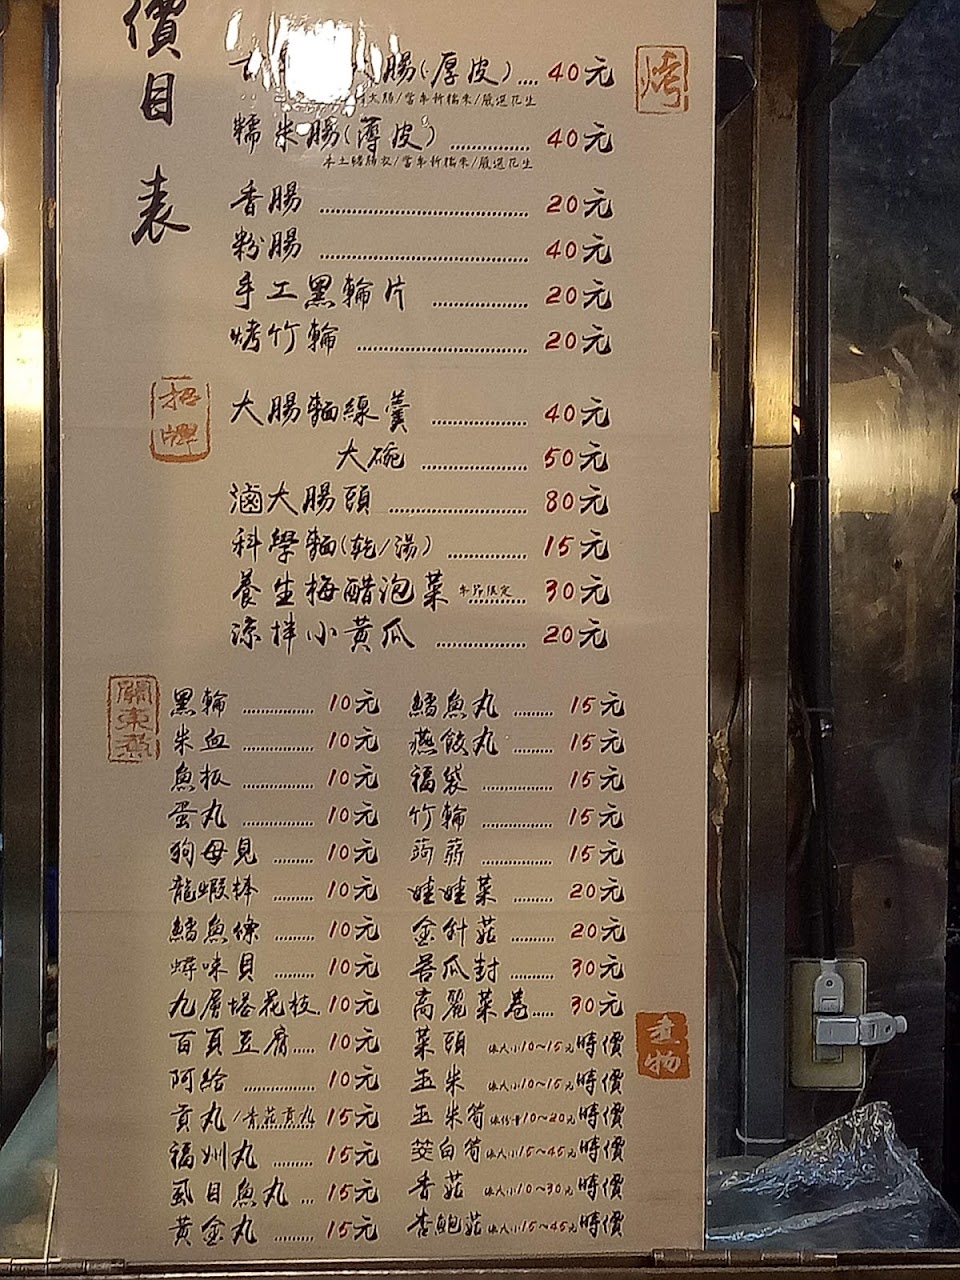 價目表
烤
腸(厚皮)....40元
大腸/當年新糯米/嚴選花生
糯米腸(薄皮)..............40元
本土豬腸衣/當年新糯米/嚴選花生
香腸..............20元
粉腸..............40元
手工黑輪片..............20元
烤竹輪..............20元
招牌
大腸麵線羹..............40元
大碗..............50元
滷大腸頭..............80元
科學麵(乾/湯)..............15元
養生梅醋泡菜 季節限定..........30元
涼拌小黃瓜..............20元
關東煮
黑輪..........10元
米血..........10元
魚板..........10元
蛋丸..........10元
狗母見........10元
龍蝦棒........10元
鱈魚條........10元
蟳味貝........10元
九層塔花枝.10元
百頁豆腐.....10元
阿給..........10元
貢丸/香菇貢丸 15元
福州丸........15元
虱目魚丸...15元
黃金丸........15元
鱈魚丸.......15元
燕餃丸.......15元
福袋..........15元
竹輪..........15元
蒟蒻..........15元
娃娃菜.......20元
金針菇........20元
苦瓜封........30元
高麗菜卷.....30元
煮物
菜頭 依大小10~15元時價
玉米 依大小10~15元時價
玉米筍 10~20元時價
茭白筍 依大小15~45元時價
香菇 依大小10~30元時價
杏鮑菇 依大小15~45元時價